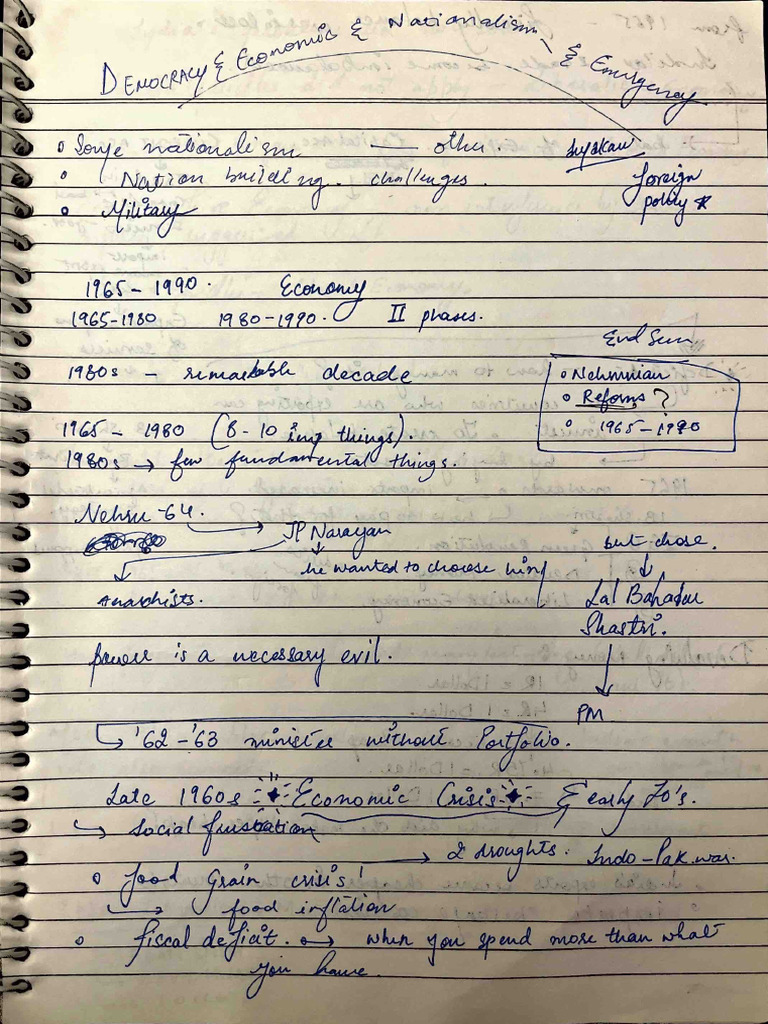 DEMOCRACY & Economic & Nationalism & Emergency
nationalism — other. Jayshankar
Nation building. challenges. foreign
Military policy *
1965 - 1990. Economy
1965-1980 1980-1990. II phases.
End Sem
1980s - remarkable decade
Nehruvian
Reforms ?
1965 - 1990
1965 - 1980 (8-10 imp things).
1980s → few fundamental things.
Nehru - 64. → JP Narayan
but chose.
he wanted to choose him
Anarchists.
Lal Bahadur
Shastri.
power is a necessary evil.
PM
'62 - '63 minister without Portfolio.
Late 1960s Economic Crisis & early 70's.
Social frustration
→ 2 droughts. Indo-Pak war.
food Grain crisis!
food inflation
fiscal deficit. → when you spend more than what
you have.